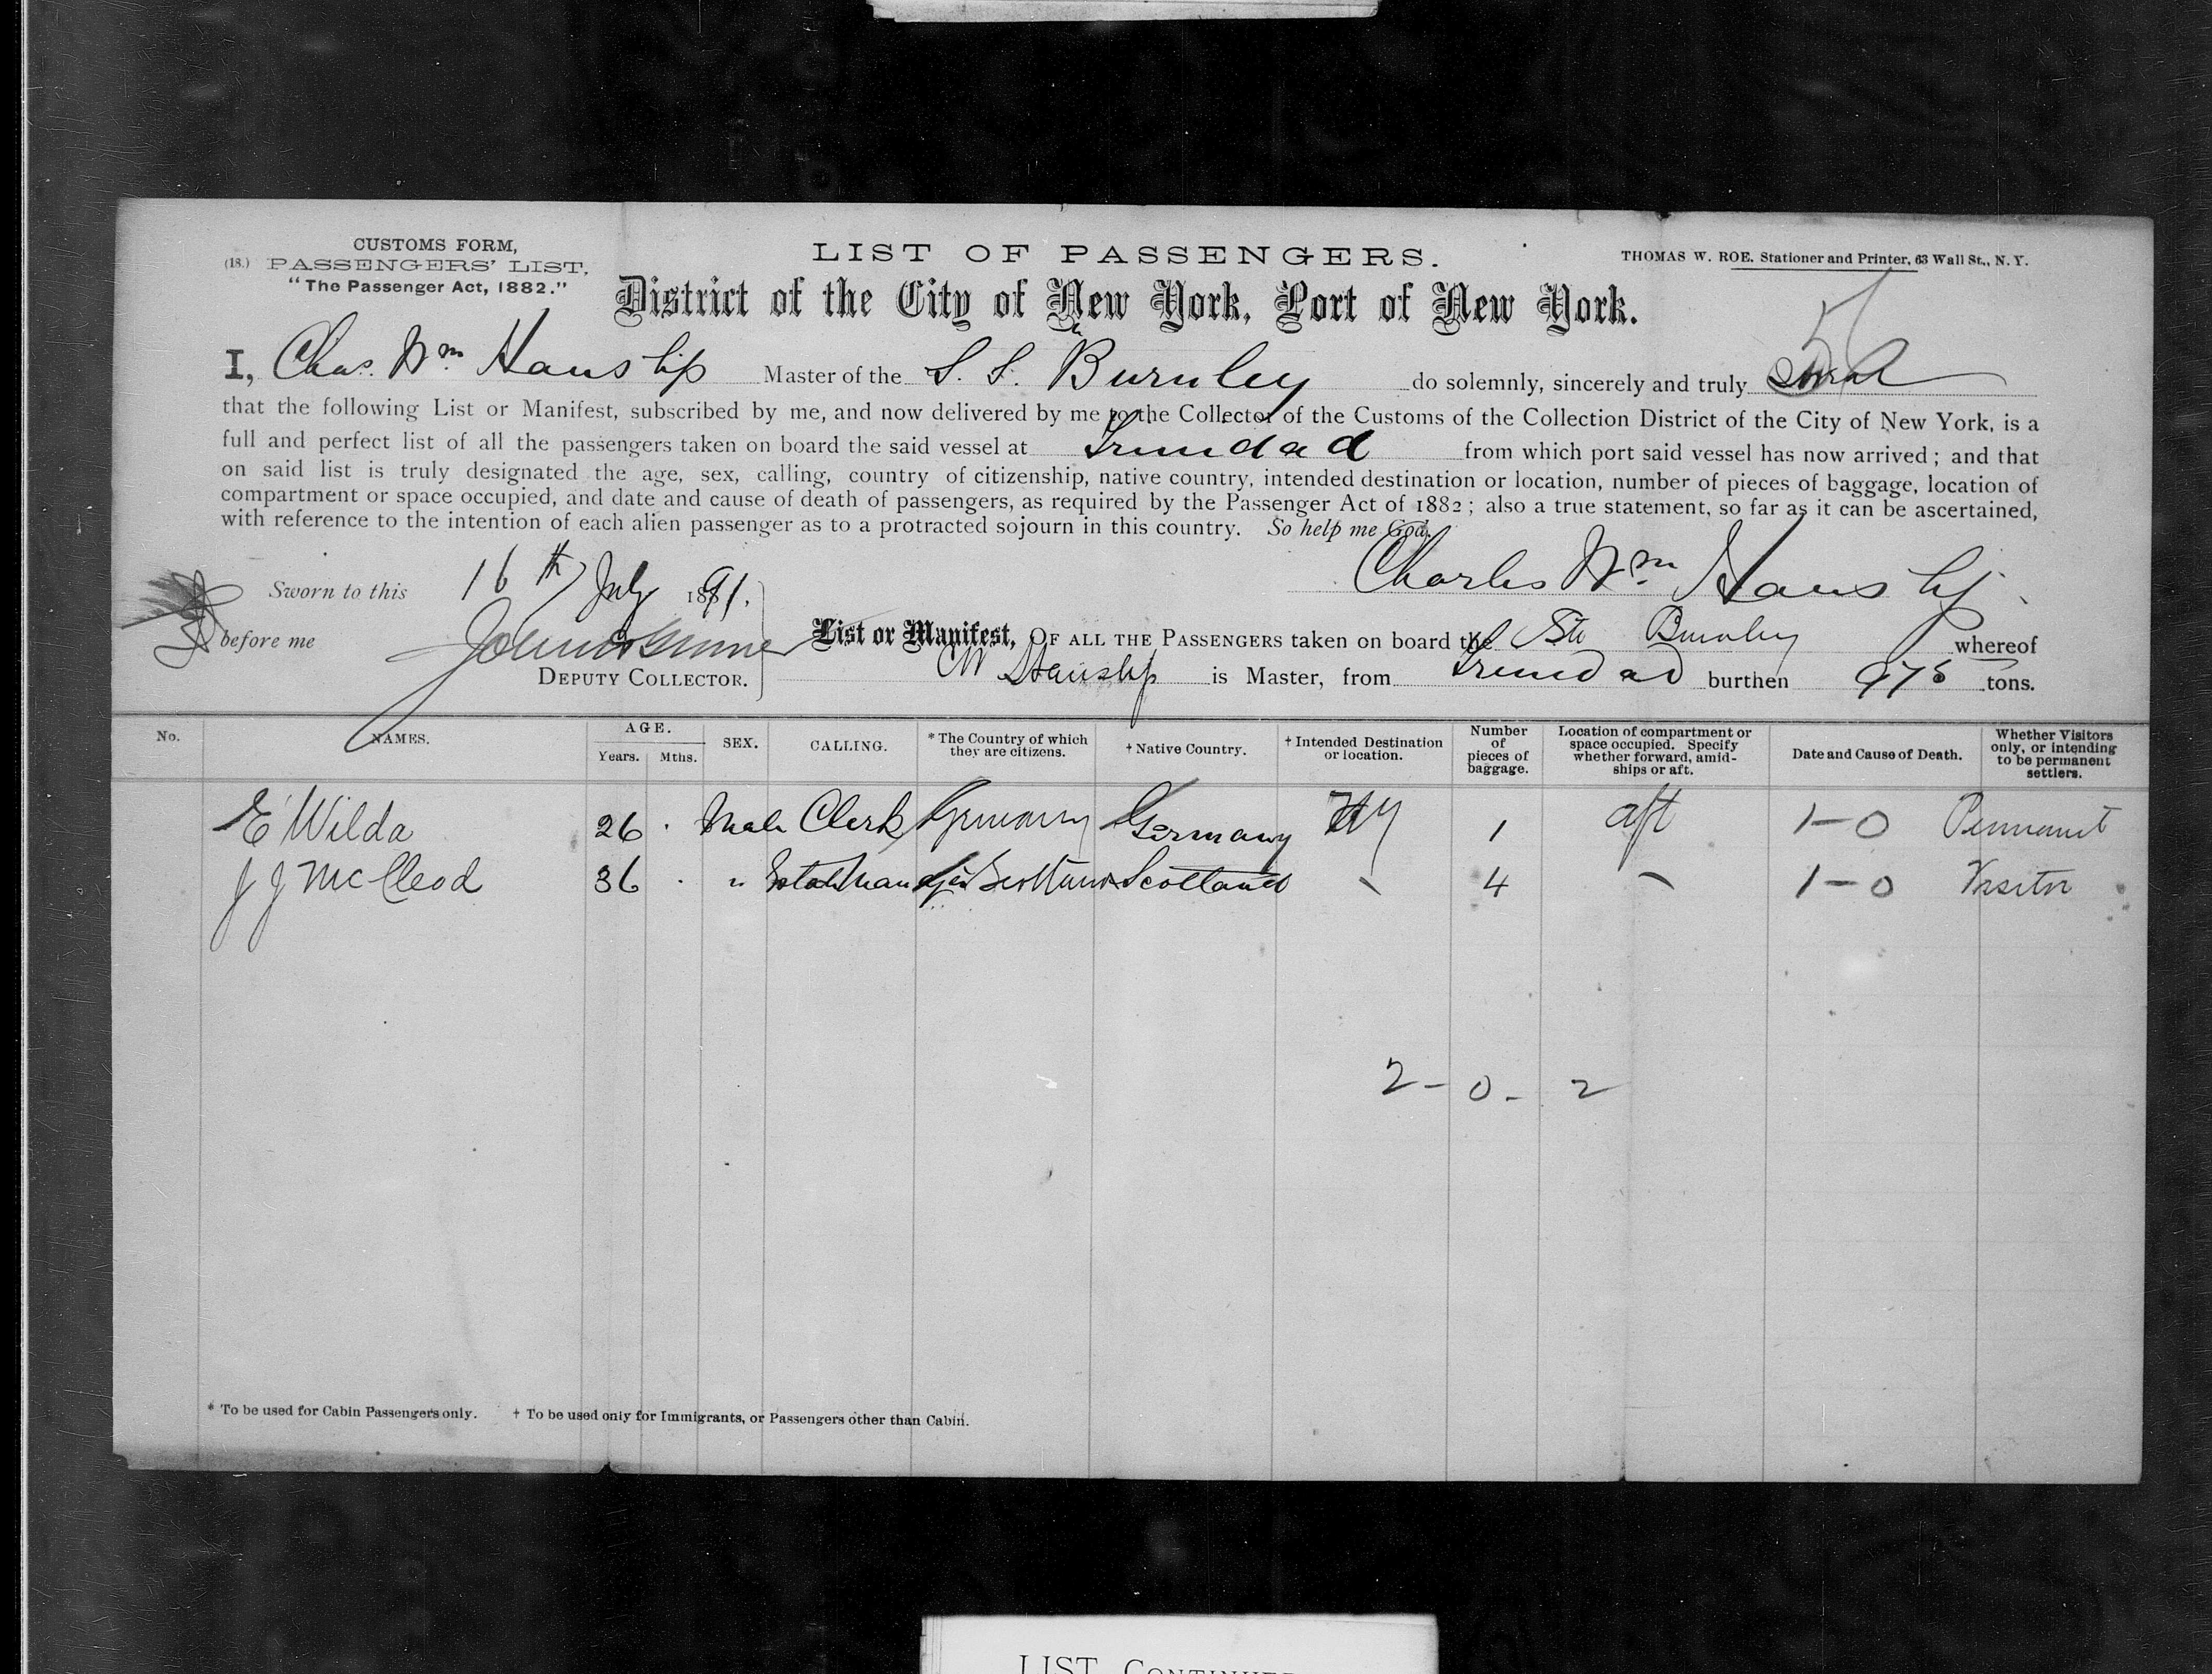 CUSTOMS FORM,
(18.) PASSENGERS' LIST,
"The Passenger Act, 1882."
LIST OF PASSENGERS.
THOMAS W. ROE. Stationer and Printer, 63 Wall St., N. Y.
District of the City of New York, Port of New York.
I, Chas. Wm Hanslip Master of the S. S. Burnley do solemnly, sincerely and truly
that the following List or Manifest, subscribed by me, and now delivered by me to the Collector of the Customs of the Collection District of the City of New York, is a
full and perfect list of all the passengers taken on board the said vessel at Trinidad from which port said vessel has now arrived; and that
on said list is truly designated the age, sex, calling, country of citizenship, native country, intended destination or location, number of pieces of baggage, location of
compartment or space occupied, and date and cause of death of passengers, as required by the Passenger Act of 1882; also a true statement, so far as it can be ascertained,
with reference to the intention of each alien passenger as to a protracted sojourn in this country. So help me God.
Charles Wm Hanslip
Sworn to this 16th July 1891.
before me
DEPUTY COLLECTOR.
List or Manifest, OF ALL THE PASSENGERS taken on board the Str Burnley whereof
CW Hanslip is Master, from Trinidad burthen 975 tons.
No. NAMES. AGE. Years. Mths. SEX. CALLING. * The Country of which they are citizens. † Native Country. † Intended Destination or location. Number of pieces of baggage. Location of compartment or space occupied. Specify whether forward, amidships or aft. Date and Cause of Death. Whether Visitors only, or intending to be permanent settlers.
E Wilda 26 Male Clerk Germany Germany NY 1 aft 1-0 Permanent
J J McCleod 36 " Scotland Scotland 4 1-0 Visitor
2-0-2
* To be used for Cabin Passengers only. † To be used only for Immigrants, or Passengers other than Cabin.
LIST CONTINUED